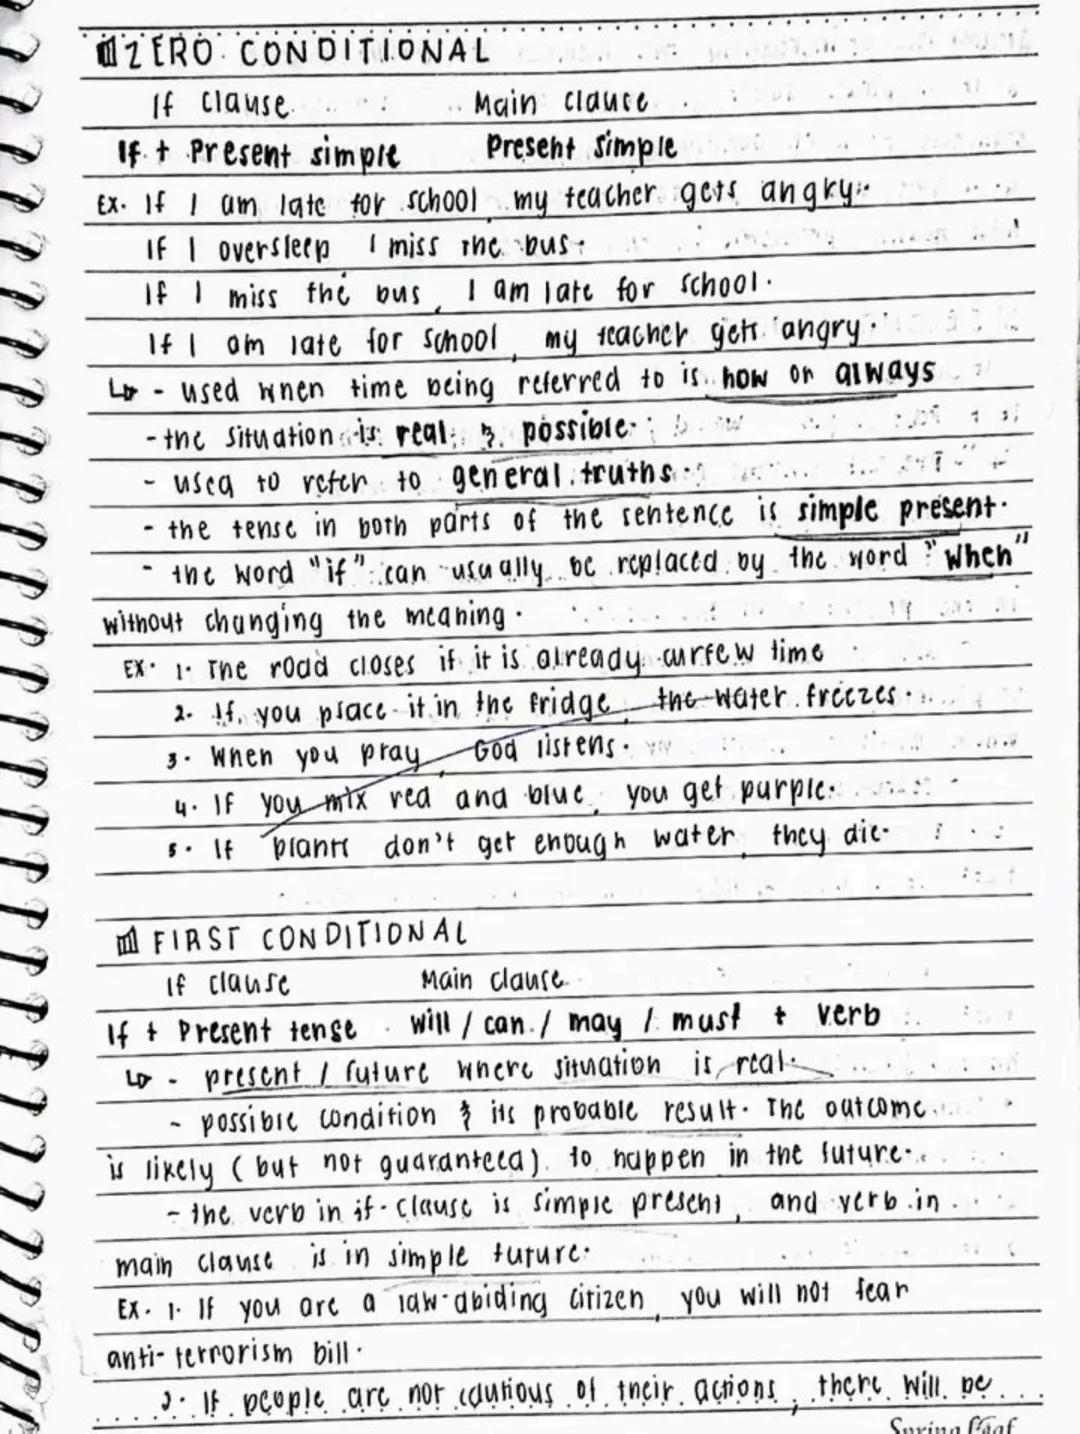 ZERO CONDITIONAL
If clause Main clause
If + Present simple Present simple
Ex. If I am late for school, my teacher gets angry.
If I oversleep I miss the bus.
If I miss the bus, I am late for school.
If I am late for school, my teacher gets angry.
↳ - used when time being referred to is now or always
- the situation is real & possible.
- used to refer to general truths.
- the tense in both parts of the sentence is simple present.
- the word "if" can usually be replaced by the word "when"
without changing the meaning.
EX. 1. The road closes if it is already curfew time
2. If you place it in the fridge, the water freezes.
3. When you pray, God listens.
4. If you mix red and blue, you get purple.
5. If plants don't get enough water, they die.
FIRST CONDITIONAL
If clause Main clause
If + Present tense will / can / may / must + verb
↳ - present / future where situation is real.
- possible condition & its probable result. The outcome
is likely (but not guaranteed) to happen in the future.
- the verb in if-clause is simple present, and verb in
main clause is in simple future.
Ex. 1. If you are a law-abiding citizen, you will not fear
anti-terrorism bill.
2. If people are not cautious of their actions, there will be
Spring Leaf